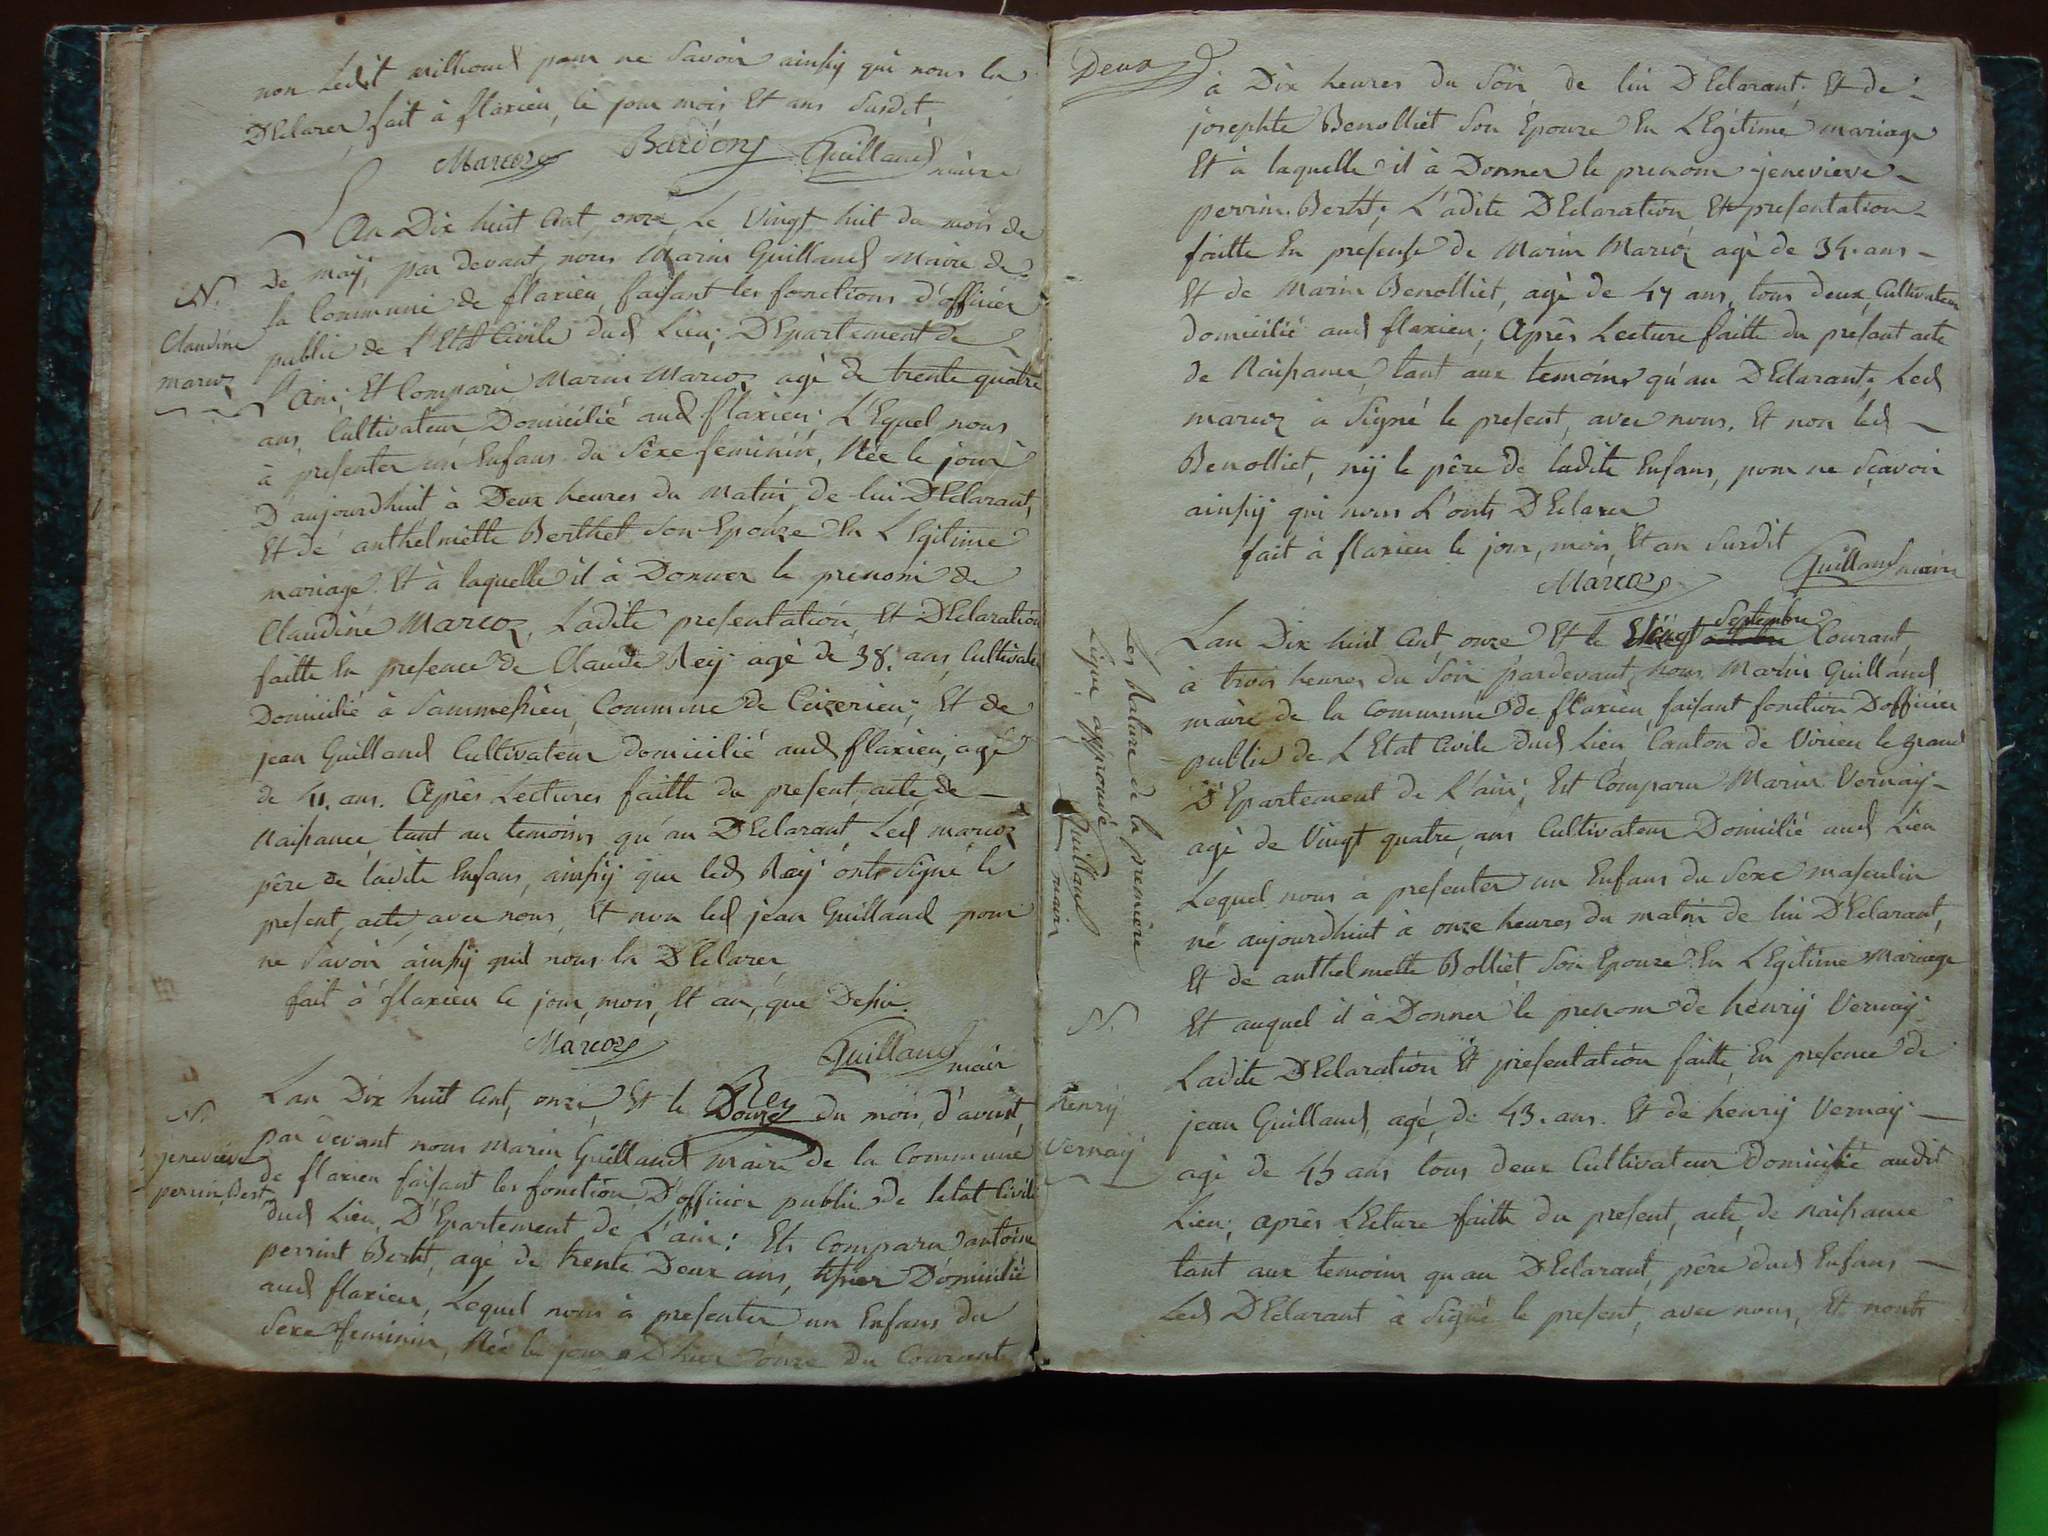 non Ledit milliand pour ne Savoir ainsiy qui nous la
DEclarer, fait à flaxieu, Ce jour mois Et ans Susdit,
Marcoz Bardon Guilland maire
Lan Dix huit Cent onze Le Vingt huit du mois de
N.
Claudine
marcoz
De maÿ, par devant nous Marin Guilland Maire de
la Commune de flaxieu, faisant les fonctions d'officier
public de L'Etat Civile dud Lieu; DEpartement de
l'Ain; Et Comparu Marin Marcoz agé de trente quatre
ans, Cultivateur Domicilié aud flaxieu; L'Equel nous
à presenter un Enfans du Sexe feminin, Née le jour
D'aujourdhuit à Deux heures du Matin, de lui DEclarant,
Et de anthelmette Berthet Son Epouze En LEgitime
mariage. Et à laquelle il à Donner le prenom de
Claudine Marcoz, Ladite presentation, Et DEclaration
faitte En presence de Claude Reÿ agé de 38. ans, Cultivateur
Domicilié à Sammessieu, Commune de Ceizerieu; Et de
jean Guilland Cultivateur domicilié aud flaxieu, agé
de 41. ans. Après Lectures faitte du present, acte de
Naissance, tant au temoins qu'au DEclarant, Led marcoz
père de ladite Enfans, ainsiy que led Reÿ onts Signé le
present, acte, avec nous, Et non led jean Guilland pour
ne Savoir ainsiy quil nous la DEclarer
fait à flaxieu Ce jour, mois, Et an, que Dessu.
Marcoz Guilland mair
Rey
N.
jenevieve
perrin, Bert
Lan Dix huit Cent, onze, Et le Douze du mois, d'avust,
par devant nous Marin Guilland maire de la Commune
de flaxieu faisant les fonction D'officier public de letat Civile
dud Lieu, D'Epartement de L'ain: Ets Comparu antoine
perrint Bertht, agé de trente Deux ans, tissier Domicilié
aud flaxieu, Lequel nous à presenter un Enfans du
Sexe feminin, Née le jour D'hier onze du Courant
Deux
à Dix heures du Soir de lui DEclarant, Et de
josephte Benolliet Son Epouze En LEgitime mariage
Et à laquelle il à Donner le prenom jenevieve
perrin. Bertht; L'adite DEclaration, Et presentation
faitte En presense de Marin Marcoz agé de 34. ans
Et de Marin Benolliet, agé de 47 ans, tous deux Cultivateur
domicilié aud flaxieu; Après Lecture faitte du présant acte
de Naissance, tant aux temoins qu'au DEclarant, Led
marcoz à Signé le present, avec nous. Et non led
Benolliet, nÿ le père de ladite Enfans, pour ne Sçavoir
ainsiy qui nous L'onts DEclarer
fait à flaxieu le jour, mois, Et an Susdit
Marcoz Guilland maire
Les Rature de la première
Ligne approuvé
Guilland mair
Lan Dix huit Cent, onze Et le Vingt Septembre Courant,
à trois heures du Soir pardevant, nous Marin Guilland
maire de la Commune de flaxieu, faisant fonction D'officier
public de L'Etat Civile dud Lieu, Canton de Virieu le grand
D'Epartement de L'ain; Est Comparu Marin Vernaÿ
agé de Vingt quatre, ans Cultivateur Domicilié aud Lieu
Lequel nous a presenter un Enfans du Sexe masculin
né aujourdhuit à onze heures du matin de lui DEclarant,
Et de anthelmette Bolliet Son Epouze En LEgitime Mariage
N.
henrÿ
Vernaÿ
Et auquel il à Donner le prenom de henrÿ Vernaÿ
Ladite DEclaration Et presentation faitte, En presence de
jean Guilland, agé, de 43. ans. Et de henrÿ Vernaÿ
agé de 45 ans tous deux Cultivateur Domicilié audit
Lieu; après LEcture faitte du present, acte, de naissance
tant aux temoins qu'au DEclarant, père dud Enfans
Led DEclarant à Signé le present, avec nous, Et nonts